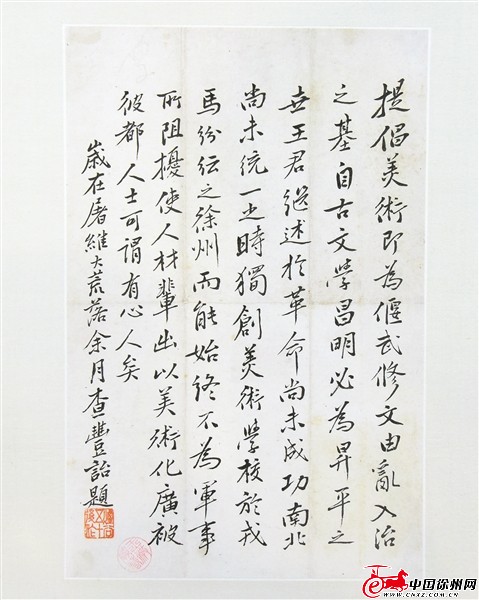 提倡美術即為偃武修文由亂入治
之基自古文學昌明必為昇平之
世王君繼述於革命尚未成功南北
尚未統一之時獨創美術學校於戎
馬紛紜之徐州而能始終不為軍事
所阻擾使人材輩出以美術化廣被
彼都人士可謂有心人矣
歲在屠維大荒落余月查豐詒題
中国徐州网
www.cnxz.com.cn